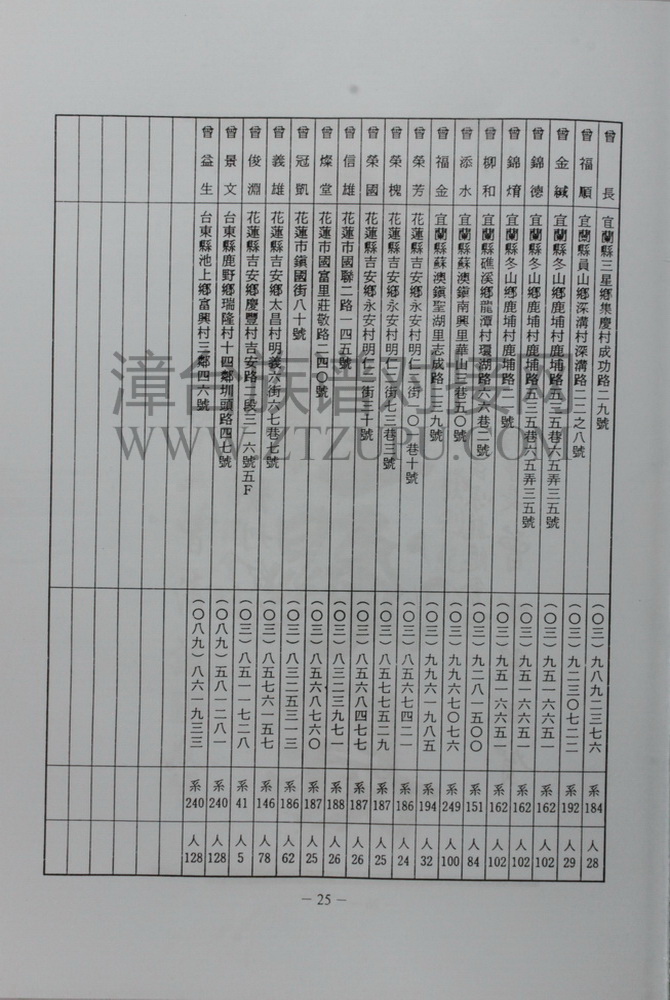 曾長 宜蘭縣三星鄉集慶村成功路二九號 (〇三)九八九二三七六 系184 人28
曾福順 宜蘭縣員山鄉深溝村深溝路二二之八號 (〇三)九二三〇七二二 系192 人29
曾金緘 宜蘭縣冬山鄉鹿埔村鹿埔路五三五巷六五弄三五號 (〇三)九五一六六五一 系162 人102
曾錦德 宜蘭縣冬山鄉鹿埔村鹿埔路五三五巷六五弄三五號 (〇三)九五一六六五一 系162 人102
曾錦焴 宜蘭縣冬山鄉鹿埔村鹿埔路二一號 (〇三)九五一六六五一 系162 人102
曾柳和 宜蘭縣礁溪鄉龍潭村環湖路六六巷二號 (〇三)九二八一五〇〇 系151 人84
曾添水 宜蘭縣蘇澳鎮南興里華山二巷五〇號 (〇三)九九六七〇七六 系249 人100
曾福金 宜蘭縣蘇澳鎮聖湖里志成路二三九號 (〇三)九九六一九八五 系194 人32
曾榮芳 花蓮縣吉安鄉永安村明仁一街一〇一巷十號 (〇三)八五六七四二一 系186 人24
曾榮槐 花蓮縣吉安鄉永安村明仁一街七三巷三號 (〇三)八五七七五二九 系187 人25
曾榮國 花蓮縣吉安鄉永安村明仁三街三十號 (〇三)八五六八四七七 系187 人26
曾信雄 花蓮市國聯二路一四五號 (〇三)八三二三九七一 系188 人26
曾燦堂 花蓮市國富里莊敬路二四〇號 (〇三)八五六八七六〇 系187 人25
曾冠凱 花蓮市鎮國街八十號 (〇三)八三二五三一三 系186 人62
曾義雄 花蓮縣吉安鄉太昌村明義六街六七巷七號 (〇三)八五七六一五七 系146 人78
曾俊淵 花蓮縣吉安鄉慶豐村吉安路二段三一六號五F (〇三)八五一一七二八 系41 人5
曾景文 台東縣鹿野鄉瑞隆村十四鄰圳頭路四七號 (〇八九)五八一二八一 系240 人128
曾益生 台東縣池上鄉富興村三鄰四六號 (〇八九)八六一九三三 系240 人128
— 25 —
漳台族谱对接网
WWW.ZTZUPU.COM